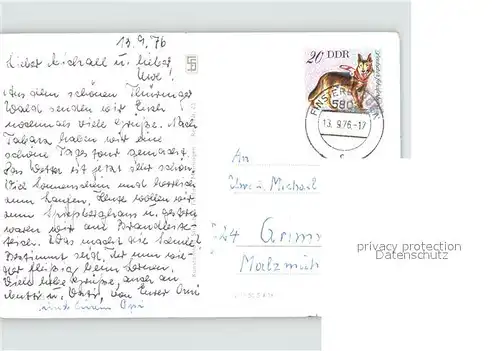 13.9.76
Lieber Michael u. lieber
Uwe!
Aus dem schönen Thüringer
Wald senden wir Euch
nochmals viele Grüße. Nach
Tabarz haben wir eine
schöne Tagestour gemacht.
Das Wetter ist jetzt sehr schön.
Viel Sonnenschein und herrlich
zum Laufen. Heute wollen wir
zum Spießberghaus u. gestern
waren wir am
Was macht die Schule?
Bestimmt seid Ihr nun wie-
der fleißig beim Lernen.
Viele liebe Grüße, auch an
Mutti u. Vati, von Eurer Omi
und Eurem Opi
20 DDR
FINSTERBERGEN
580
13.9.76.-17
c
An
Uwe u. Michael
24 Grimm
Malzmüh
privacy protection
Datenschutz